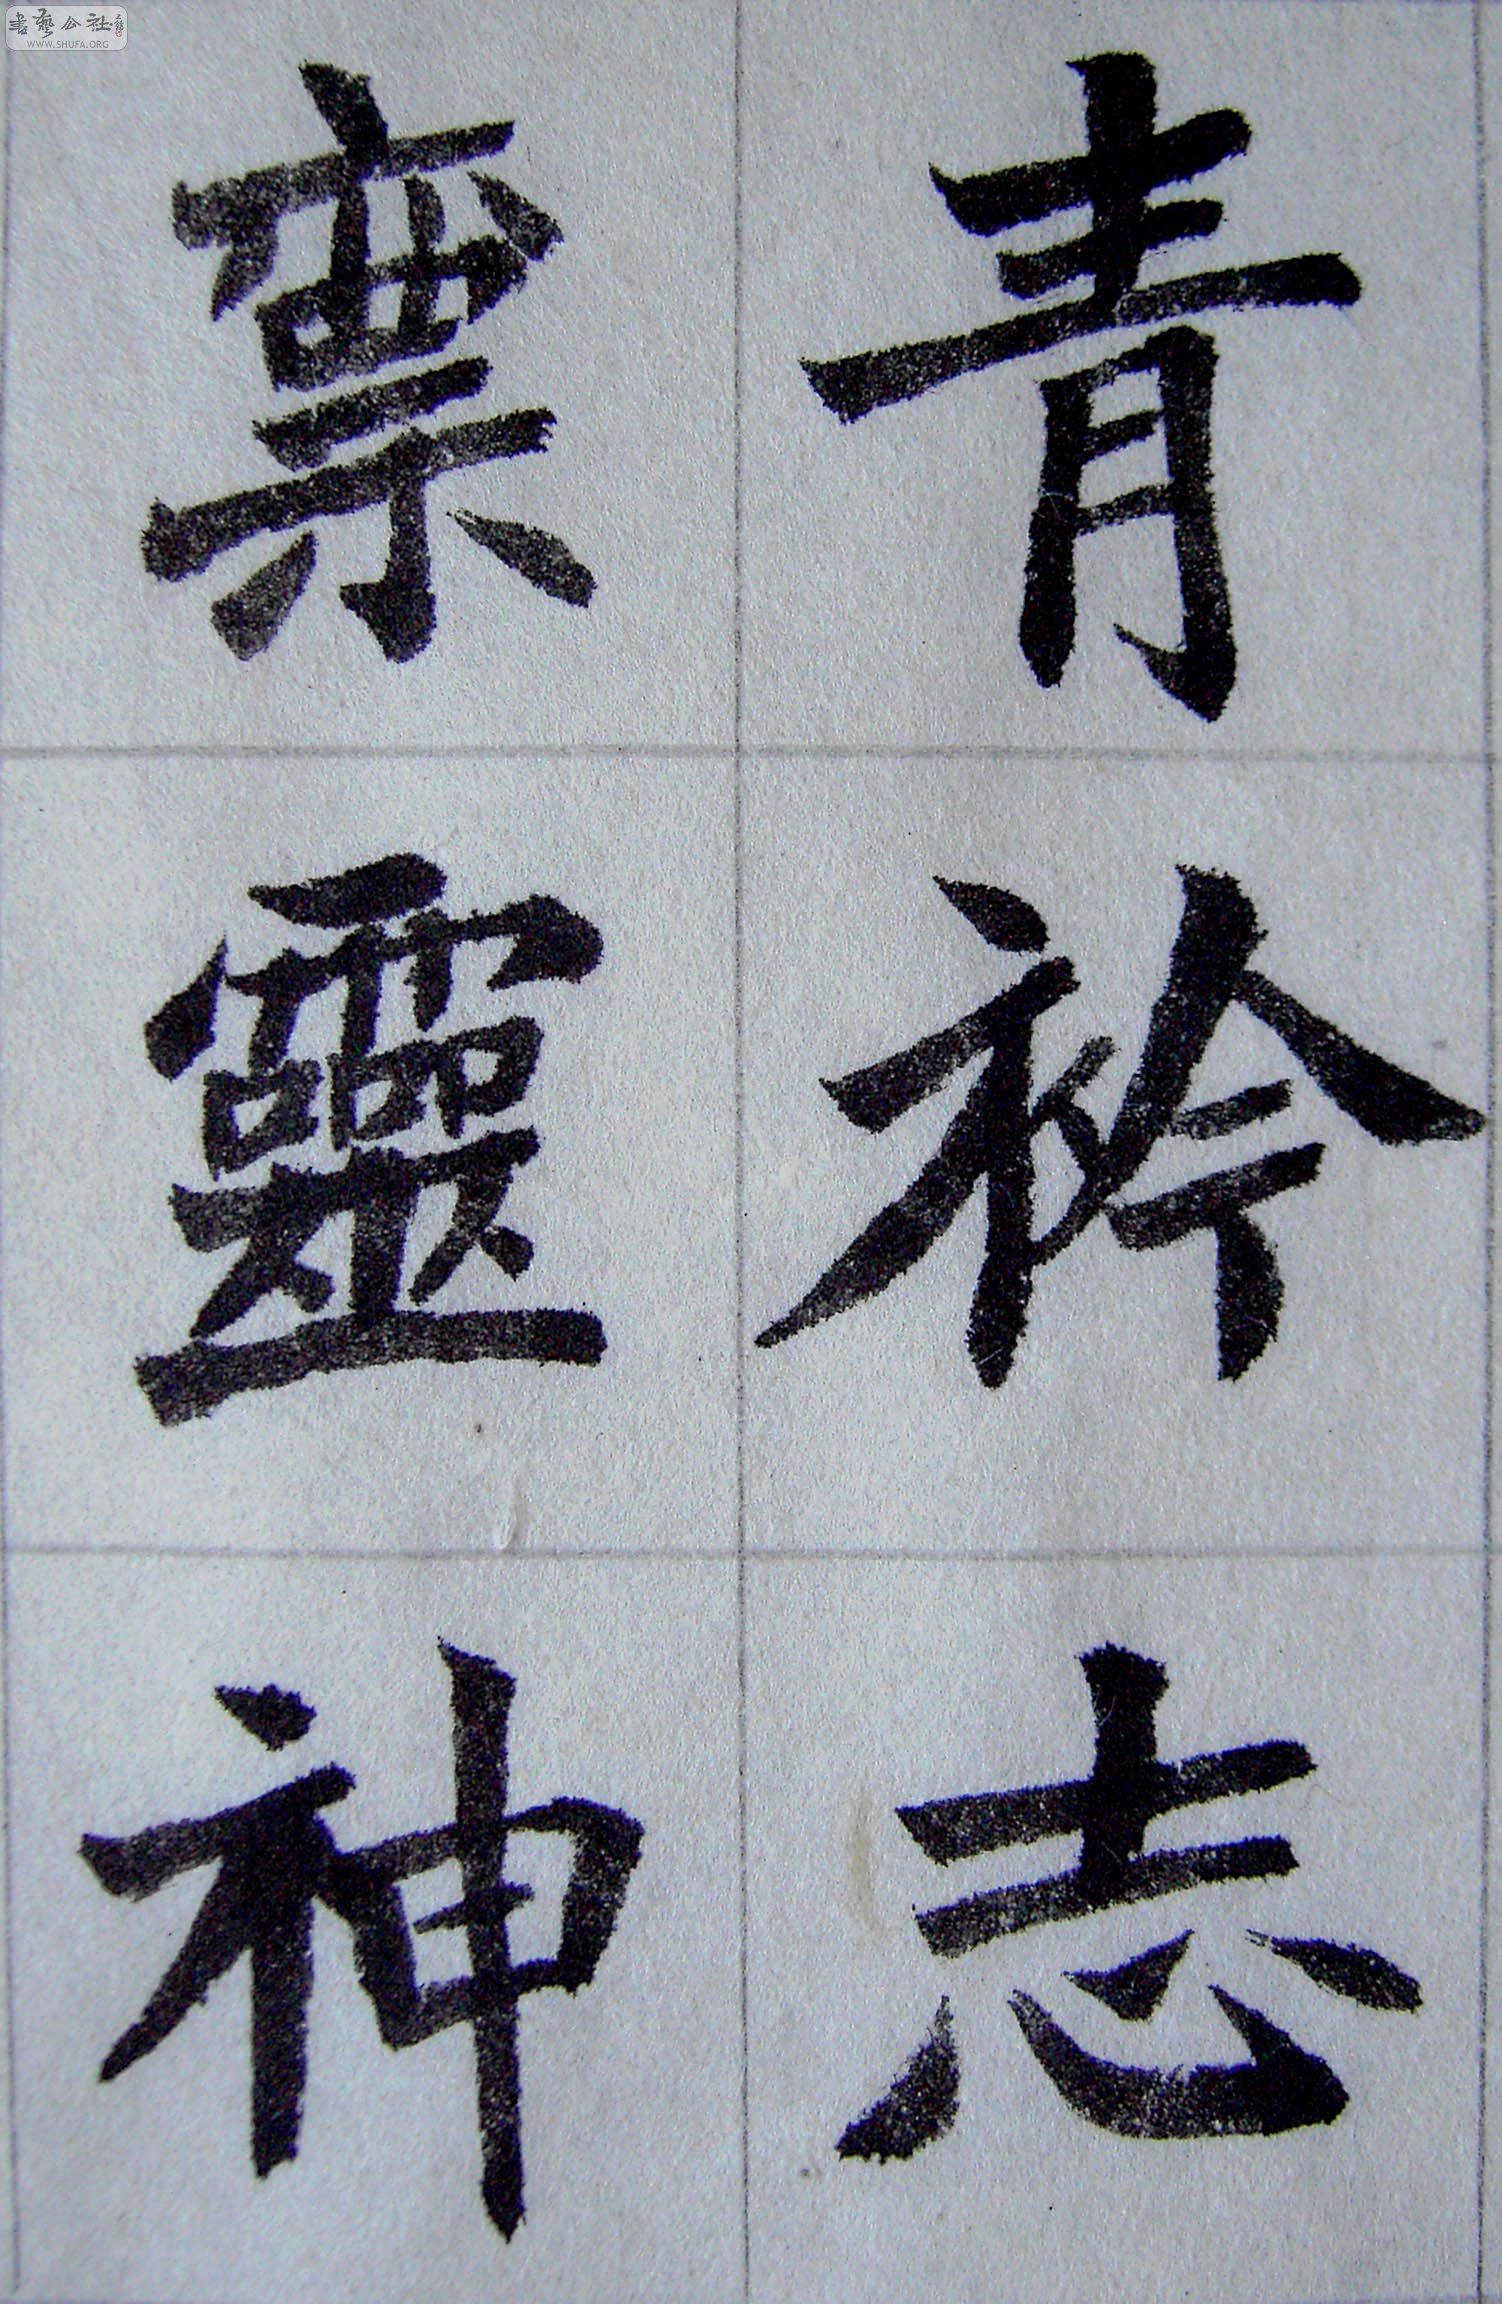 青衿志
稟靈神
書藝公社
WWW.SHUFA.ORG